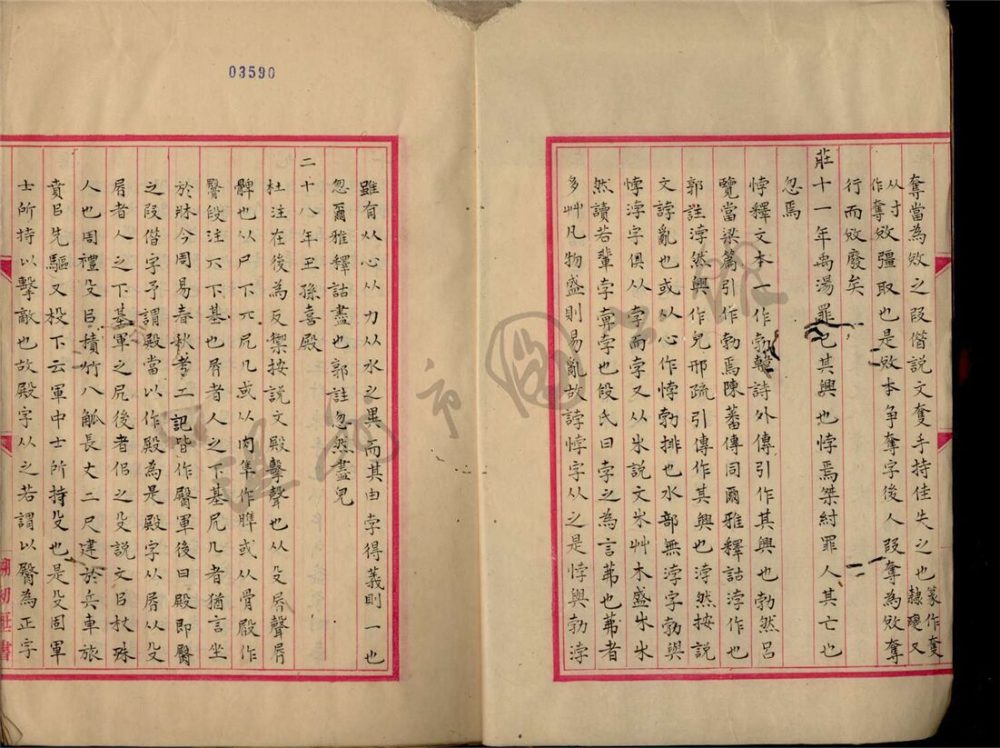 奪當為敓之叚借說文奪手持隹失之也篆作奪隸變又
从寸敓彊取也是敓本爭奪字後人叚奪為敓奪
行而敓廢矣
莊十一年禹湯罪己其興也悖焉桀紂罪人其亡也
忽焉
悖釋文本一作勃韓詩外傳引作其興也勃然呂
覽當梁篇引作勃焉陳蕃傳同爾雅釋詁浡作也
郭註浡然興作皃邢疏引傳作其興也浡然按說
文誖亂也或从心作悖勃排也水部無浡字勃與
悖浡字俱从孛而孛又从𣎵說文𣎵艸木盛𣎵𣎵
然讀若輩孛𣎵字也段氏曰孛之為言茀也茀者
多艸凡物盛則易亂故誖悖字从之是悖與勃浡
雖有从心从力从水之異而其由孛得義則一也
忽爾雅釋詁盡也郭註忽然盡皃
二十八年王孫喜殿
杜注在後為反禦按說文殿擊聲也从殳𡱂聲𡱂
髀也从尸下丌凥几或从肉隼作脽或从骨殿作
臀段注丌下基也𡱂者人之下基凥几者猶言坐
於牀今周易春秋考工記皆作臀軍後曰殿即臀
之叚借字予謂殿當以作殿為是殿字从𡱂从殳
𡱂者人之下基軍之凥後者佀之殳說文㠯杖殊
人也周禮殳㠯積竹八觚長丈二尺建於兵車旅
賁㠯先驅又杸下云軍中士所持殳也是殳固軍
士所持以擊敵也故殿字从之若謂以臀為正字
03590